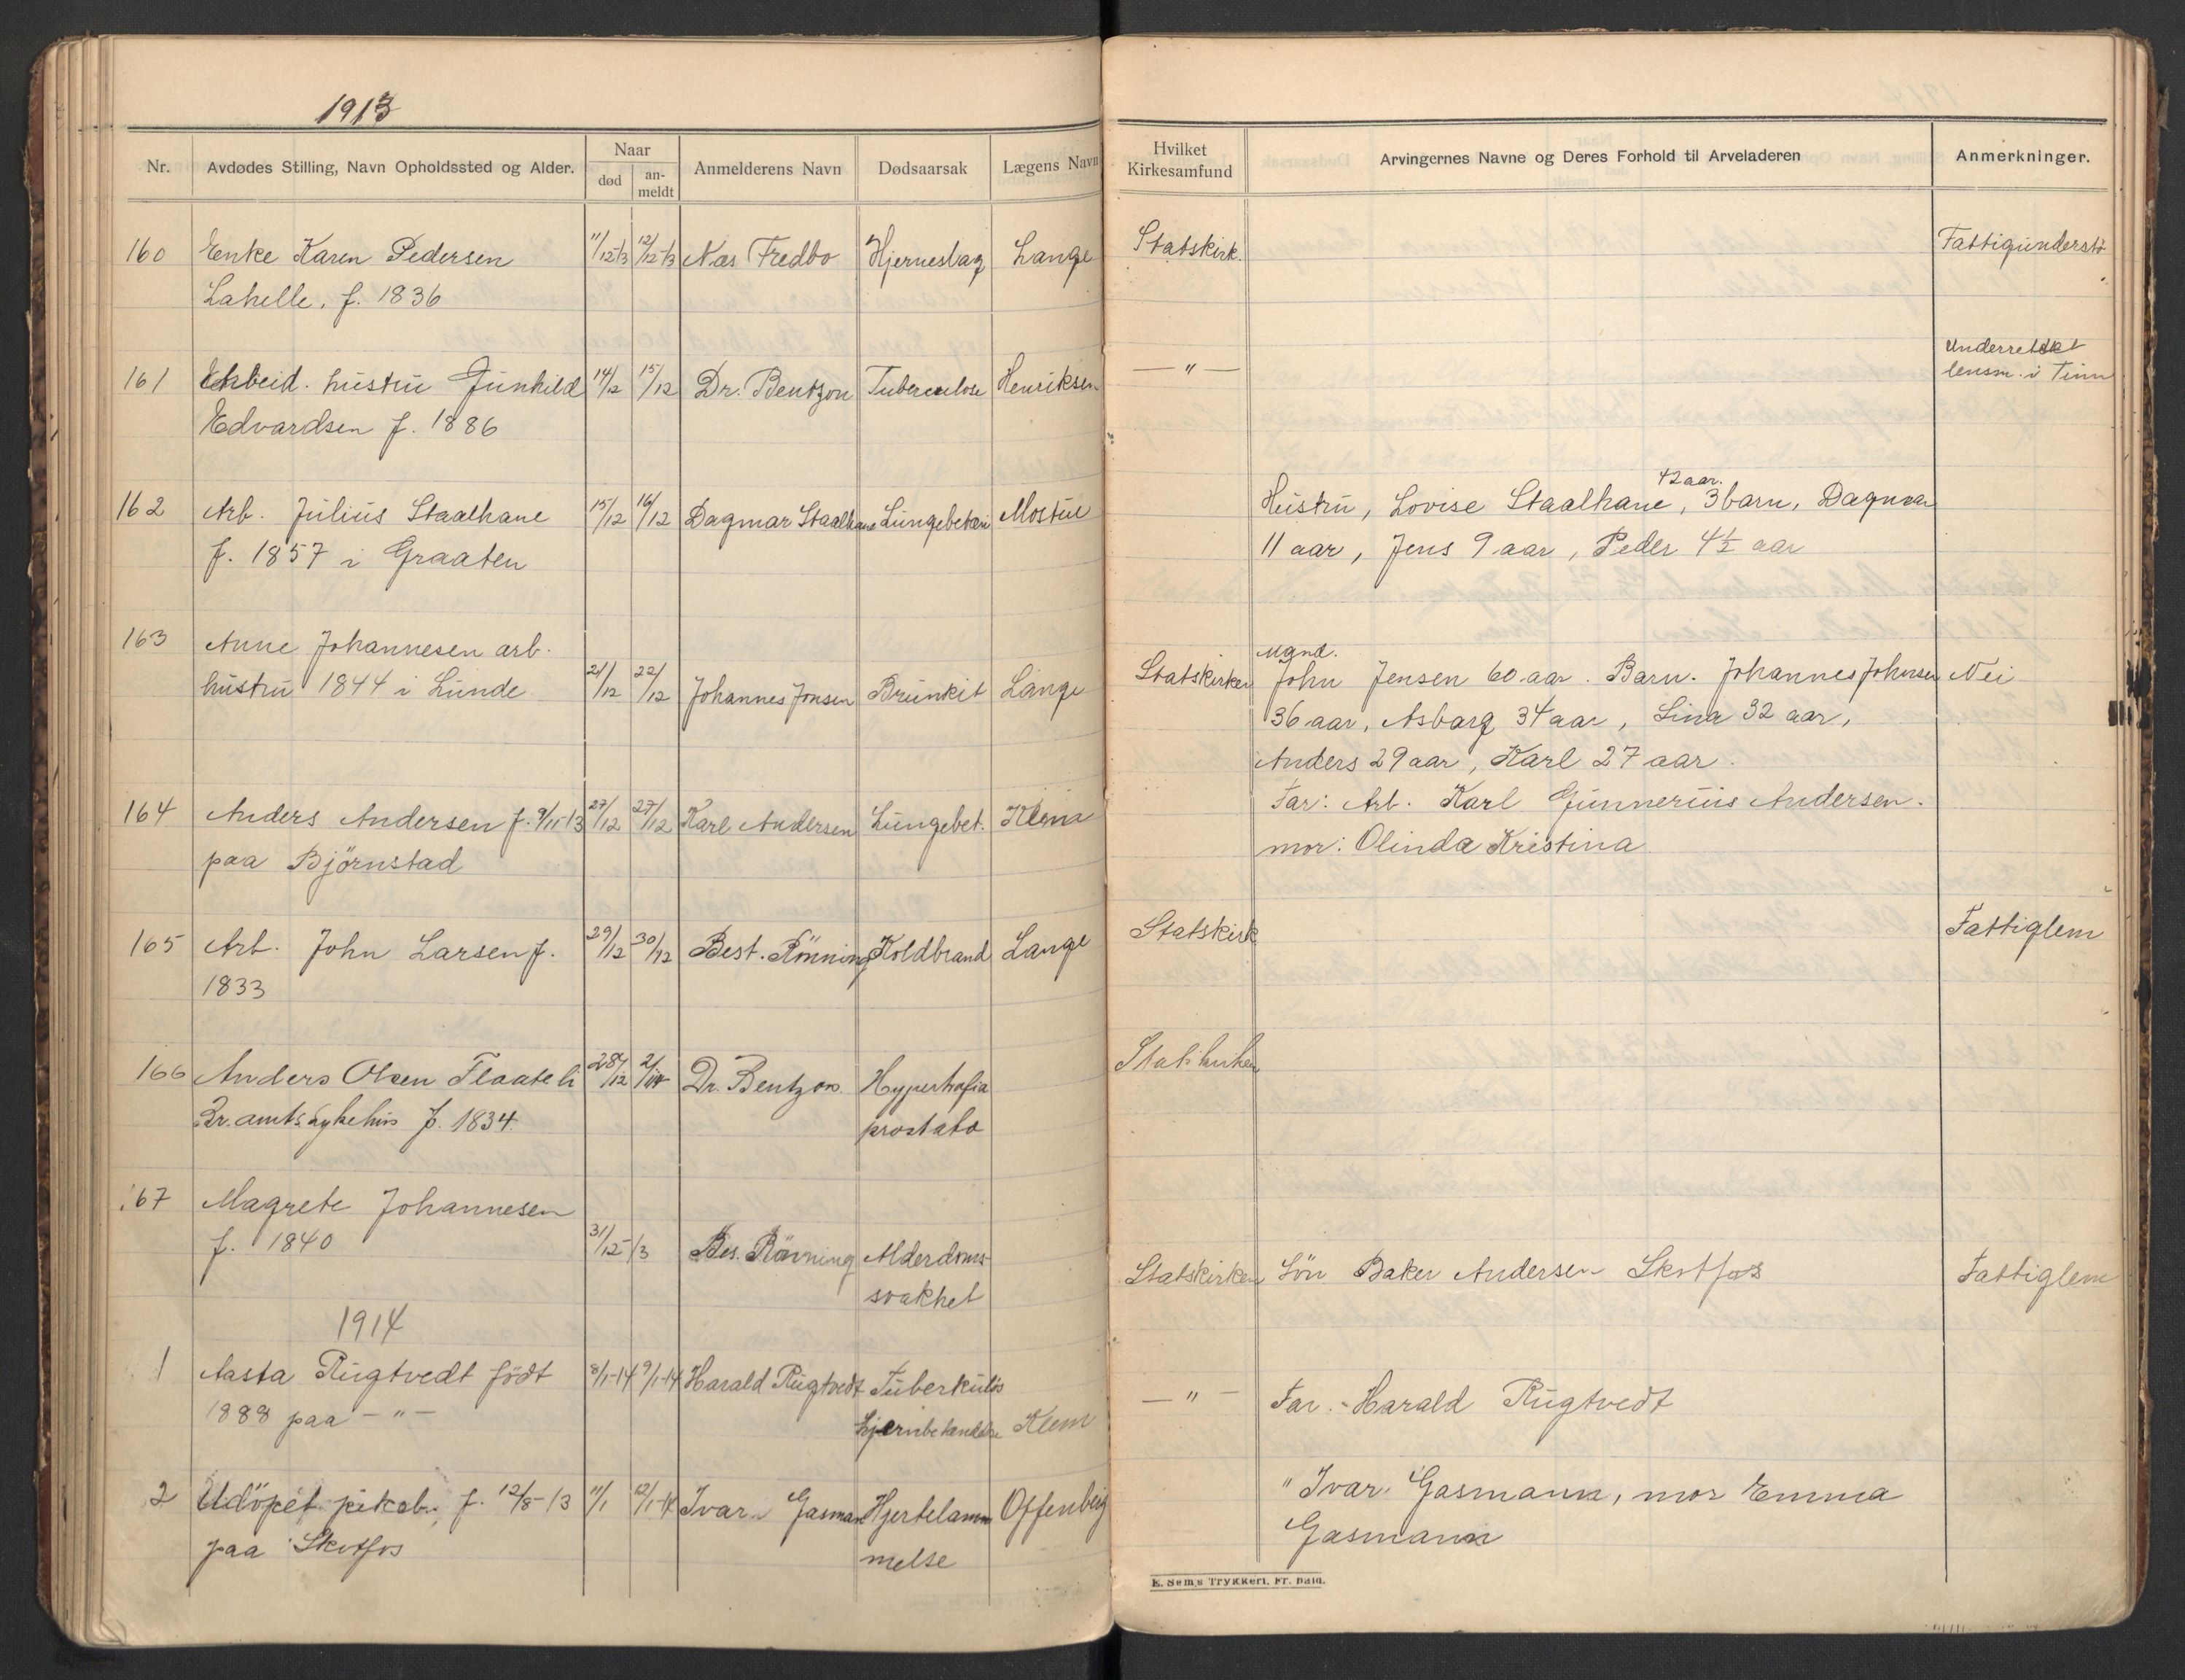 1913
Nr. Avdødes Stilling, Navn Opholdssted og Alder. Naar død an-meldt Anmelderens Navn Dødsaarsak Lægens Navn
Hvilket Kirkesamfund Arvingernes Navne og Deres Forhold til Arveladeren Anmerkninger.
160 Enke Karen Pedersen 11/12-13 12/12-13 Nas Fredbo Hjerneslag Lange Statskirk. Fattigunderst
Lahelle. f. 1836
Underrettet
161 Arbeid. hustru Gunhild 14/12 15/12 Dr. Bentzon Tuberculose Henriksen — " — lensm. i Tinn
Edvardsen f. 1886
42 aar.
162 Arb. Julius Staalhane 15/12 16/12 Dagmar Staalhane Lungebetæn Mostue Hustru, Lovise Staalhane, 3 barn, Dagmar
f. 1857 i Graaten 11 aar, Jens 9 aar, Peder 4½ aar
163 Anne Johannesen arb. Mand.
hustru 1844 i Lunde 21/12 22/12 Johannes Jonsen Brunkit Lange Statskirken John Jensen 60 aar. Barn. Johannes Johnsen Nei
36 aar, Asbarg 34 aar, Lina 32 aar,
Anders 29 aar, Karl 27 aar.
164 Anders Andersen f. 9/11-13 27/12 27/12 Karl Andersen Lungebet. Klem Far: Arb. Karl Gunnerius Andersen.
paa Björnstad mor: Olinda Kristina
165 Arb. John Larsen f. 29/12 30/12 Best. Rönning Koldbrand Lange Statskirk Fattiglem
1833
166 Anders Olsen Flaateli 28/12 2/1 14 Dr. Bentzon. Hypertrofia Statskirken
Br. amts sykehus f. 1834. prostata
167 Magrete Johannesen
f. 1840 31/12-13 Bes. Rönning Alderdoms- Statskirken Sön Baker Andersen Skotfos Fattiglem
svakhet
1914
1 Aasta Rugtvedt födt 8/1-14 9/1-14 Harald Rugtvedt Tuberkulös — " — Far. - Harald Rugtvedt
1888 paa - " - hjernbetændelse Klem
2 Udöpet pikebn. f. 12/8-13 11/1 12/1-14 Ivar Gasman Hjertelam Offenberg " Ivar Gasmann, mor Emma
paa Skotfos melse Gasmann
E. Sem's Trykkeri, Fr.hald.